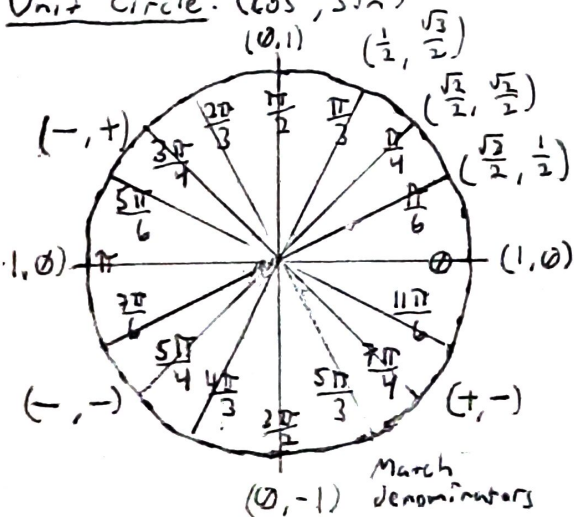 Unit Circle: (cos, sin)
(0,1)
(1/2, √3/2)
(√2/2, √2/2)
(√2/2, 1/2)
(-,+)
2π/3
π/2
π/3
3π/4
π/4
5π/6
π/6
1,0)
π
0
(1,0)
7π/6
11π/6
5π/4
7π/4
4π/3
5π/3
3π/2
(-,-)
(+,-)
(0,-1)
March
denominators